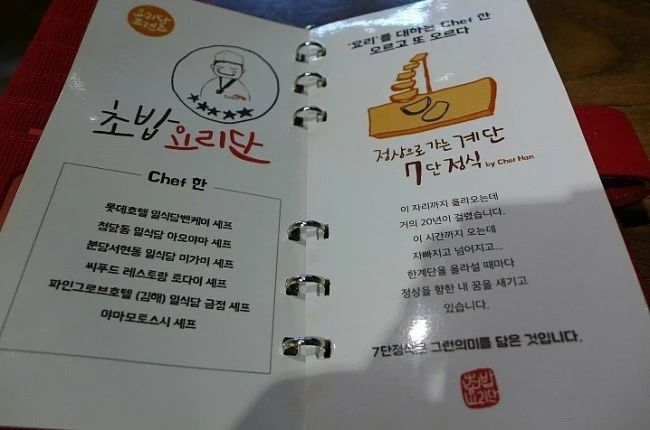 요리단
프렌즈
초밥 요리단
Chef 한
롯데호텔 일식담벤케이 셰프
청담동 일식담 아오야마 셰프
분담서현동 일식담 미가미 셰프
씨푸드 레스토랑 토다이 셰프
파인그로브호텔 (김해) 일식담 금정 셰프
야마모토스시 셰프
'요리'를 대하는 Chef 한
오르고 또 오르다
정상으로 가는 계단
7단 정식 by Chef Han
이 자리까지 올라오는데
거의 20년이 걸렸습니다.
이 시간까지 오는데
자빠지고 넘어지고...
한계단을 올라설 때마다
정상을 향한 내 꿈을 새기고
있습니다.
7단정식은 그런의미를 담은 것입니다.
초밥
요리단